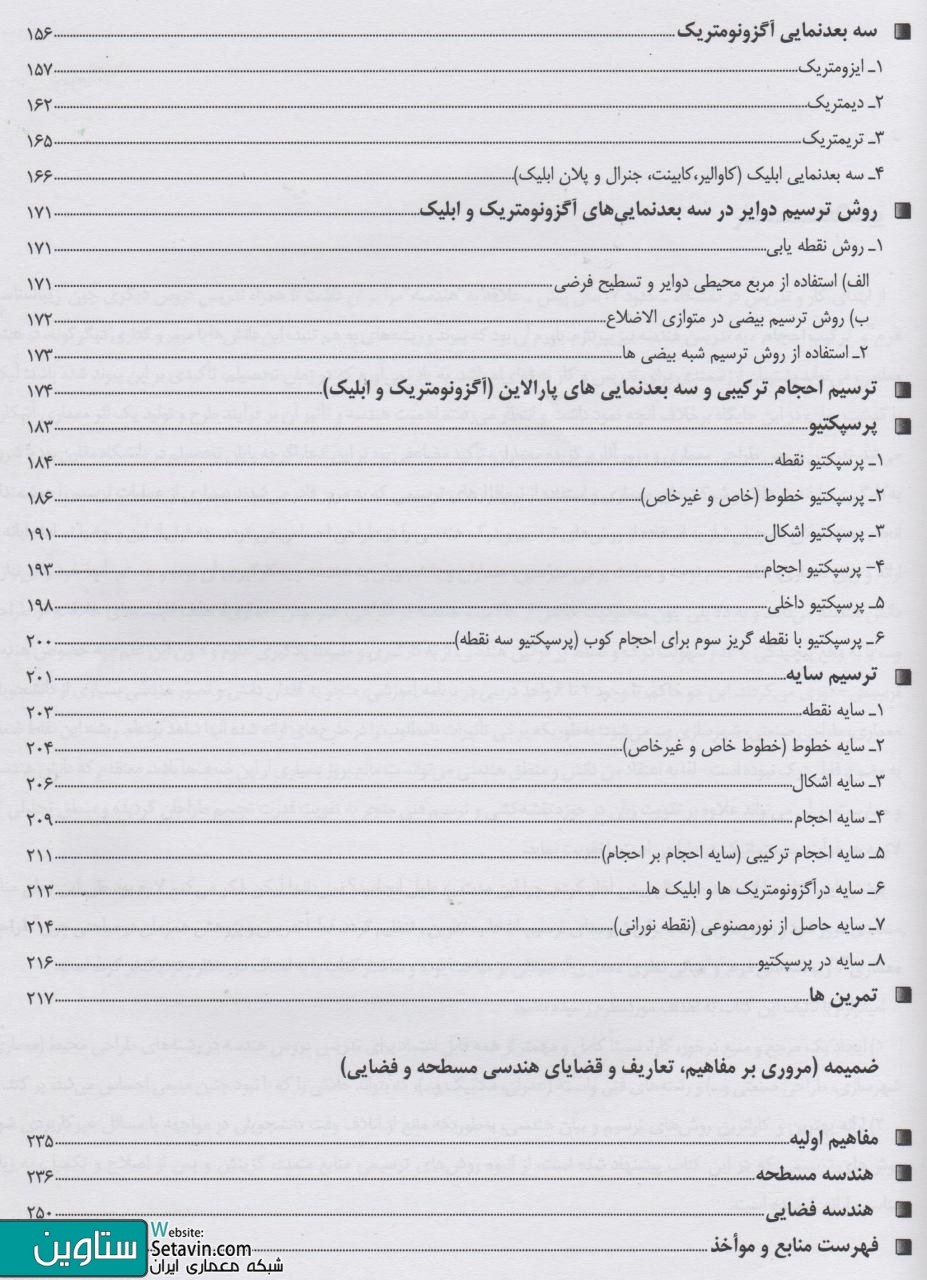 سه بعدنمایی آگزونومتریک ۱۵۶
۱ـ ایزومتریک ۱۵۷
۲ـ دیمتریک ۱۶۲
۳ـ تریمتریک ۱۶۵
۴ـ سه بعدنمایی ابلیک (کاوالیر،کابینت، جنرال و پلان ابلیک) ۱۶۶
روش ترسیم دوایر در سه بعدنمایی‌های آگزونومتریک و ابلیک ۱۷۱
۱ـ روش نقطه یابی ۱۷۱
الف) استفاده از مربع محیطی دوایر و تسطیح فرضی ۱۷۱
ب) روش ترسیم بیضی در متوازی الاضلاع ۱۷۲
۲ـ استفاده از روش ترسیم شبه بیضی ها ۱۷۳
ترسیم احجام ترکیبی و سه بعدنمایی های پارالاین (آگزونومتریک و ابلیک) ۱۷۴
پرسپکتیو ۱۸۳
۱ـ پرسپکتیو نقطه ۱۸۴
۲ـ پرسپکتیو خطوط (خاص و غیرخاص) ۱۸۶
۳ـ پرسپکتیو اشکال ۱۹۱
۴- پرسپکتیو احجام ۱۹۳
۵ـ پرسپکتیو داخلی ۱۹۸
۶ـ پرسپکتیو با نقطه گریز سوم برای احجام کوب (پرسپکتیو سه نقطه) ۲۰۰
ترسیم سایه ۲۰۱
۱ـ سایه نقطه ۲۰۳
۲ـ سایه خطوط (خطوط خاص و غیرخاص) ۲۰۴
۳ـ سایه اشکال ۲۰۶
۴ـ سایه احجام ۲۰۹
۵ـ سایه احجام ترکیبی (سایه احجام بر احجام) ۲۱۱
۶ـ سایه درآگزونومتریک ها و ابلیک ها ۲۱۳
۷ـ سایه حاصل از نورمصنوعی (نقطه نورانی) ۲۱۴
۸ـ سایه در پرسپکتیو ۲۱۶
تمرین ها ۲۱۷
ضمیمه (مروری بر مفاهیم، تعاریف و قضایای هندسی مسطحه و فضایی)
مفاهیم اولیه ۲۳۵
هندسه مسطحه ۲۳۶
هندسه فضایی ۲۵۰
فهرست منابع و موأخذ
ستاوین
Website:
Setavin.com
شبکه معماری ایران